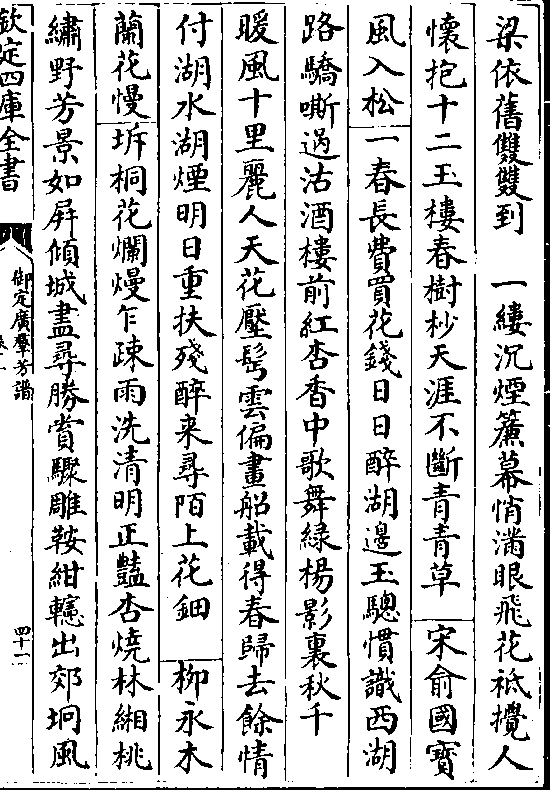 梁依舊雙雙到　一縷沉煙簾幕悄滿眼飛花祗攪人
懷抱十二玉樓春樹杪天涯不斷青青草　宋俞國寶
風入松　一春長費買花錢日日醉湖邊玉驄慣識西湖
路驕嘶過沽酒樓前紅杏香中歌舞緑楊影裏秋千
暖風十里麗人天花壓髩雲偏畫船載得春歸去餘情
付湖水湖煙明日重扶殘醉来尋陌上花鈿　柳永木
蘭花慢　坼桐花爛熳乍疎雨洗清明正豔杏燒林緗桃
繡野芳景如屛傾城盡尋勝賞驟雕鞍紺轞出郊坰風
欽定四庫全書
御定廣羣芳譜
四十一